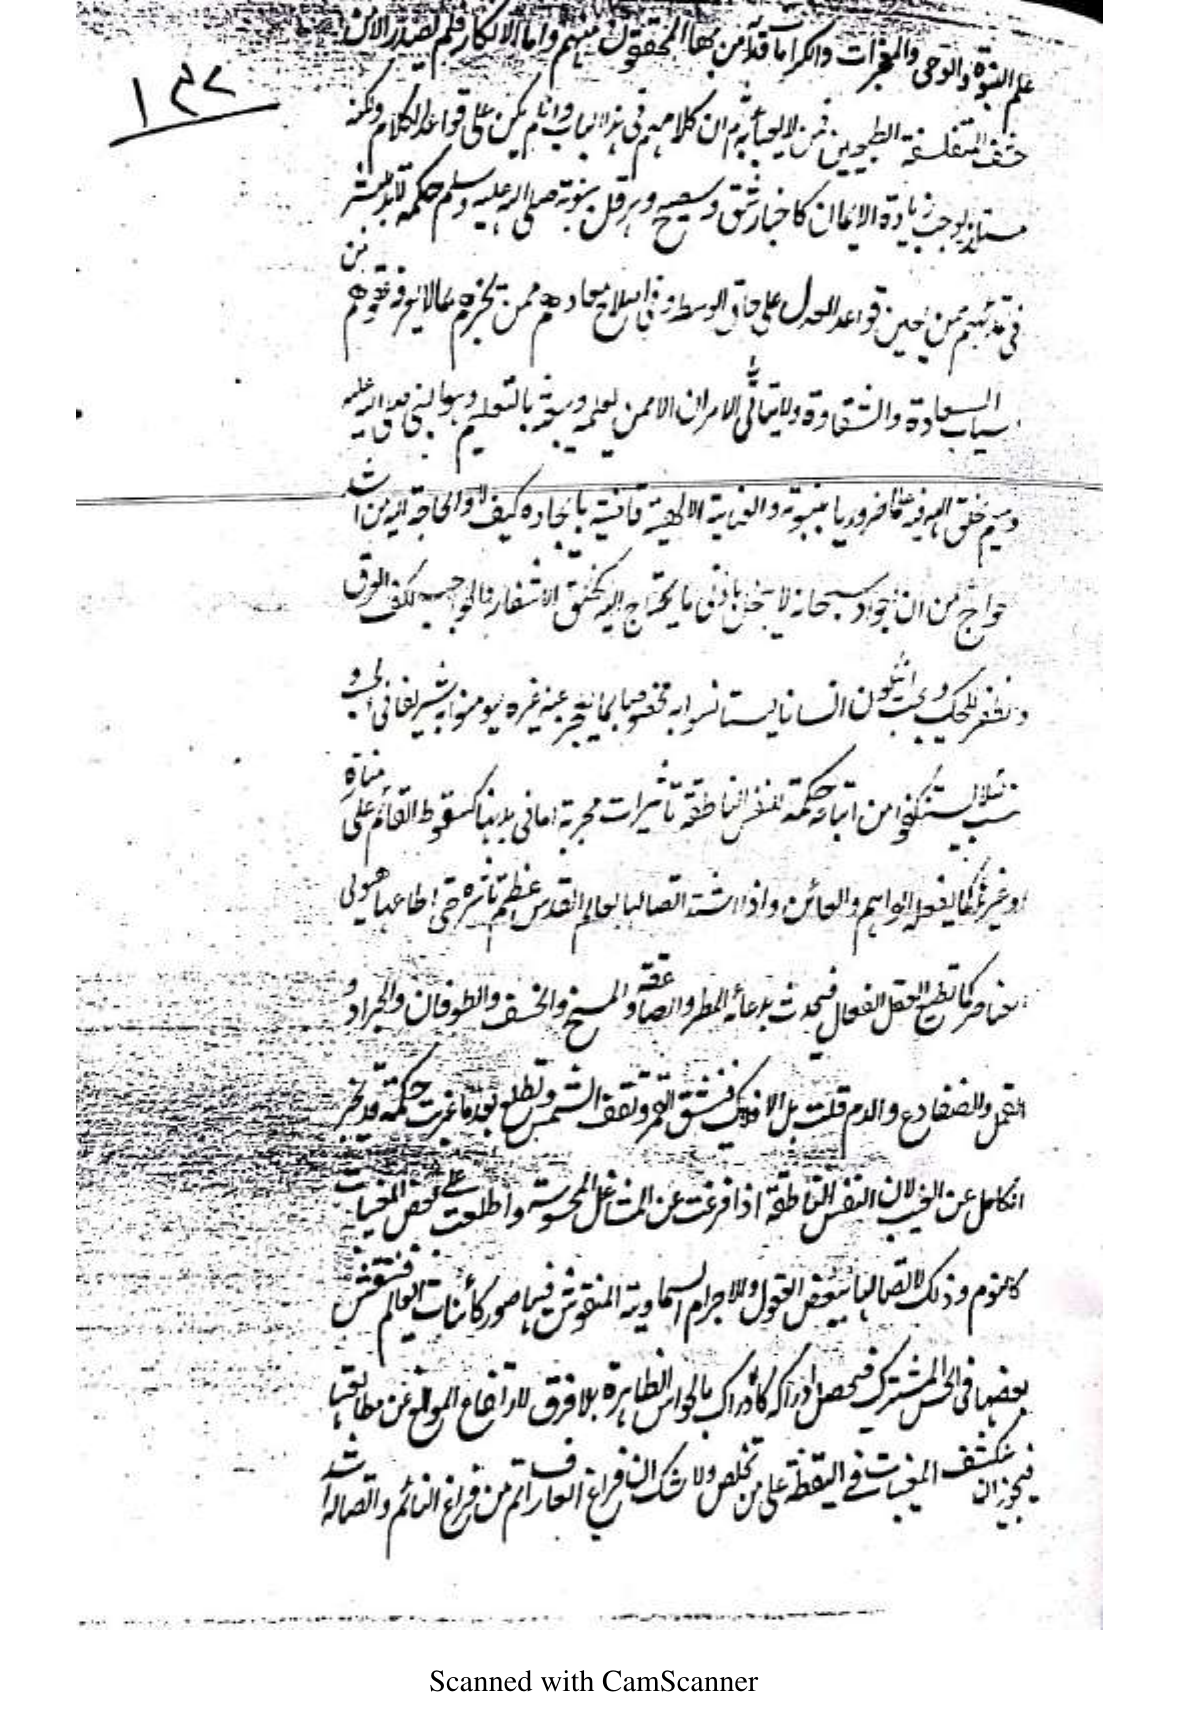 علم النبوة والوحى والمعجزات والكرامات قد آمن بها المحققون منهم واما الانكار فلم يصدر الا من
١٣٢
المتفلسفة الطبيعيين ممن لا يعبأ به ثم ان كلامهم فى هذا الباب وان لم يكن على قواعد الكلام ولكنه
يوجب زيادة الايمان كاخبار شق وسطيح وهرقل بنبوته صلى الله عليه وسلم حكمة لابد للبشر
من
فى تمدنهم ممن يعين قواعد العدل على حاق الوسط وفى اصلاح معادهم ممن يخبرهم بما لا يعرفه عقولهم
اسباب السعادة والشقاوة ولا يتأتى الامران الا ممن يعلمه ربه بالتعليم وهو النبى صلى الله عليه
وسلم خلق الله فيه علما ضروريا بنبوته والعناية الالهية قاضية بايجاده كيف لا والحاجة اليه من اشد
حوائج من ان الجواد سبحانه لا يبخل بادنى ما يحتاج اليه كخلق الاشفار والحواجب لكف العرق
ويجب ان يكون انسانا ليستانسوا به مخصوصا بما يعجز عنه غيره ليؤمنوا به
لئلا يستنكفوا من اتباعه حكمة للنفس الناطقة تأثيرات مجربة اما فى بدنها كسقوط القائم على
مناة
او غيره كما يفعله الواهم والعائن واذا اشتد اتصالها بالعالم القدس عظم تأثيره حتى اطاعها هيولى
العناصر كما تطيع العقل الفعال فيحدث بدعائه المطر والصاعقة والمسخ والخسف والطوفان والجراد و
القمل والضفادع والدم قلت بل الافلاك فينشق القمر وتقف الشمس وتطلع بعد ما غربت حكمة قد يخبر
الكامل عن الغيب لان النفس الناطقة اذا فرغت عن المشاغل المحسوسة واطلعت على بعض المغيبات
كالنوم وذلك لاتصالها ببعض العقول والاجرام السماوية المنقوش فيها صور كائنات العالم فينتقش
بعضها فى الحس المشترك فيحصل ادراكه كالادراك بالحواس الظاهرة بلا فرق لارتفاع الموانع عن مطالعتها
فيجوز ان ينكشف المغيبات فى اليقظة على من تخلص ولا شك ان فراغ العارف اتم من فراغ النائم واتصاله اشد
Scanned with CamScanner